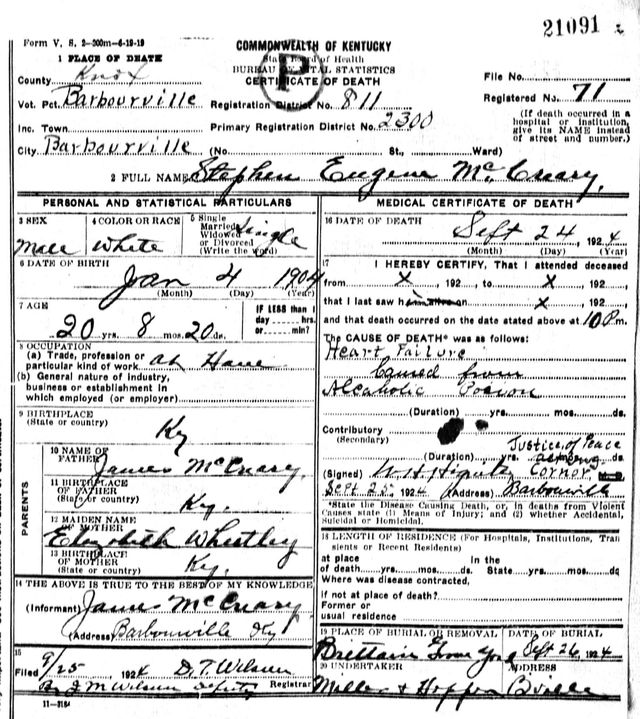 21091
Form V. S. 2-300m-6-19-19
1 PLACE OF DEATH
COMMONWEALTH OF KENTUCKY
State Board of Health
BUREAU OF VITAL STATISTICS
CERTIFICATE OF DEATH
P
County Knox
File No.
Vot. Pct. Barbourville
Registration District No. 811
Registered No. 71
Inc. Town
Primary Registration District No. 2300
(If death occurred in a hospital or institution, give its NAME instead of street and number.)
City Barbourville (No. St., Ward)
2 FULL NAME Stephen Eugene McCreary.
PERSONAL AND STATISTICAL PARTICULARS
3 SEX Male
4 COLOR OR RACE White
5 Single Married Widowed or Divorced (Write the word) Single
6 DATE OF BIRTH
Jan 4 1904
(Month) (Day) (Year)
7 AGE
20 yrs. 8 mos. 20 ds.
IF LESS than 1 day ------ hrs. or ------ min?
8 OCCUPATION
(a) Trade, profession or particular kind of work at Home
(b) General nature of industry, business or establishment in which employed (or employer)
9 BIRTHPLACE
(State or country) Ky
PARENTS
10 NAME OF FATHER James McCreary.
11 BIRTHPLACE OF FATHER
(State or country) Ky.
12 MAIDEN NAME OF MOTHER
Elizabeth Wheetley
13 BIRTHPLACE OF MOTHER
(State or country) Ky.
14 THE ABOVE IS TRUE TO THE BEST OF MY KNOWLEDGE
(Informant) James McCreary
(Address) Barbourville Ky
15
Filed 9/25, 1924 D.T. Wilson
By J M Wilson Deputy Registrar
11-3184
MEDICAL CERTIFICATE OF DEATH
16 DATE OF DEATH
Sept 24, 1924
(Month) (Day) (Year)
17 I HEREBY CERTIFY, That I attended deceased
from X, 192 , to X, 192
that I last saw h alive on X, 192
and that death occurred on the date stated above at 10 P.m.
The CAUSE OF DEATH* was as follows:
Heart Failure
Caused from
Alcaholic Poison
(Duration) yrs. mos. ds.
Contributory
(Secondary)
Justice of Peace
(Duration) yrs. mos. ds.
acting
(Signed) Cornor
Sept 25, 1924 (Address) Barbourville
*State the Disease Causing Death, or, in deaths from Violent Causes state (1) Means of Injury; and (2) whether Accidental, Suicidal or Homicidal.
18 LENGTH OF RESIDENCE (For Hospitals, Institutions, Transients or Recent Residents)
at place of death yrs. mos. ds. In the State yrs. mos. ds.
Where was disease contracted,
if not at place of death?
Former or usual residence
19 PLACE OF BURIAL OR REMOVAL
Brittain Grave Yard
DATE OF BURIAL
Sept 26, 1924
20 UNDERTAKER
Miller & Hopper
ADDRESS
Bville